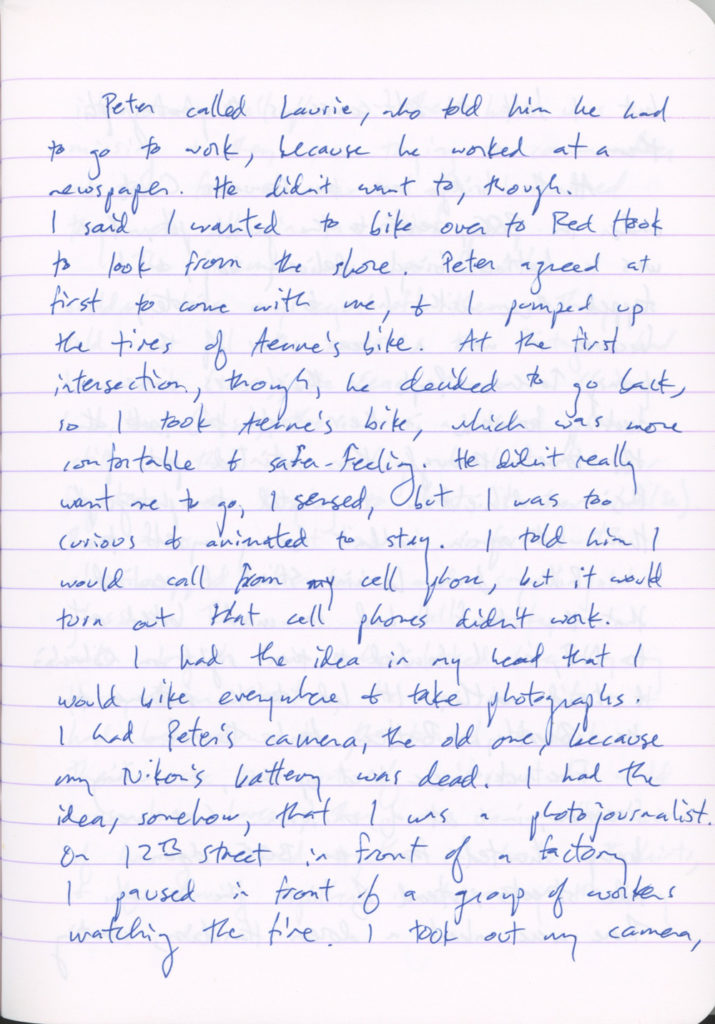 Peter called Laurie, who told him he had
to go to work, because he worked at a
newspaper. He didn't want to, though.
I said I wanted to bike over to Red Hook
to look from the shore. Peter agreed at
first to come with me, & I pumped up
the tires of 's bike. At the first
intersection, though, he decided to go back,
so I took 's bike, which was more
comfortable & safer-feeling. He didn't really
want me to go, I sensed, but I was too
curious & animated to stay. I told him I
would call from my cell phone, but it would
turn out that cell phones didn't work.
I had the idea in my head that I
would bike everywhere & take photographs.
I had Peter's camera, the old one, because
my Nikon's battery was dead. I had the
idea, somehow, that I was a photojournalist.
On 12th street in front of a factory
I paused in front of a group of workers
watching the fire. I took out my camera,